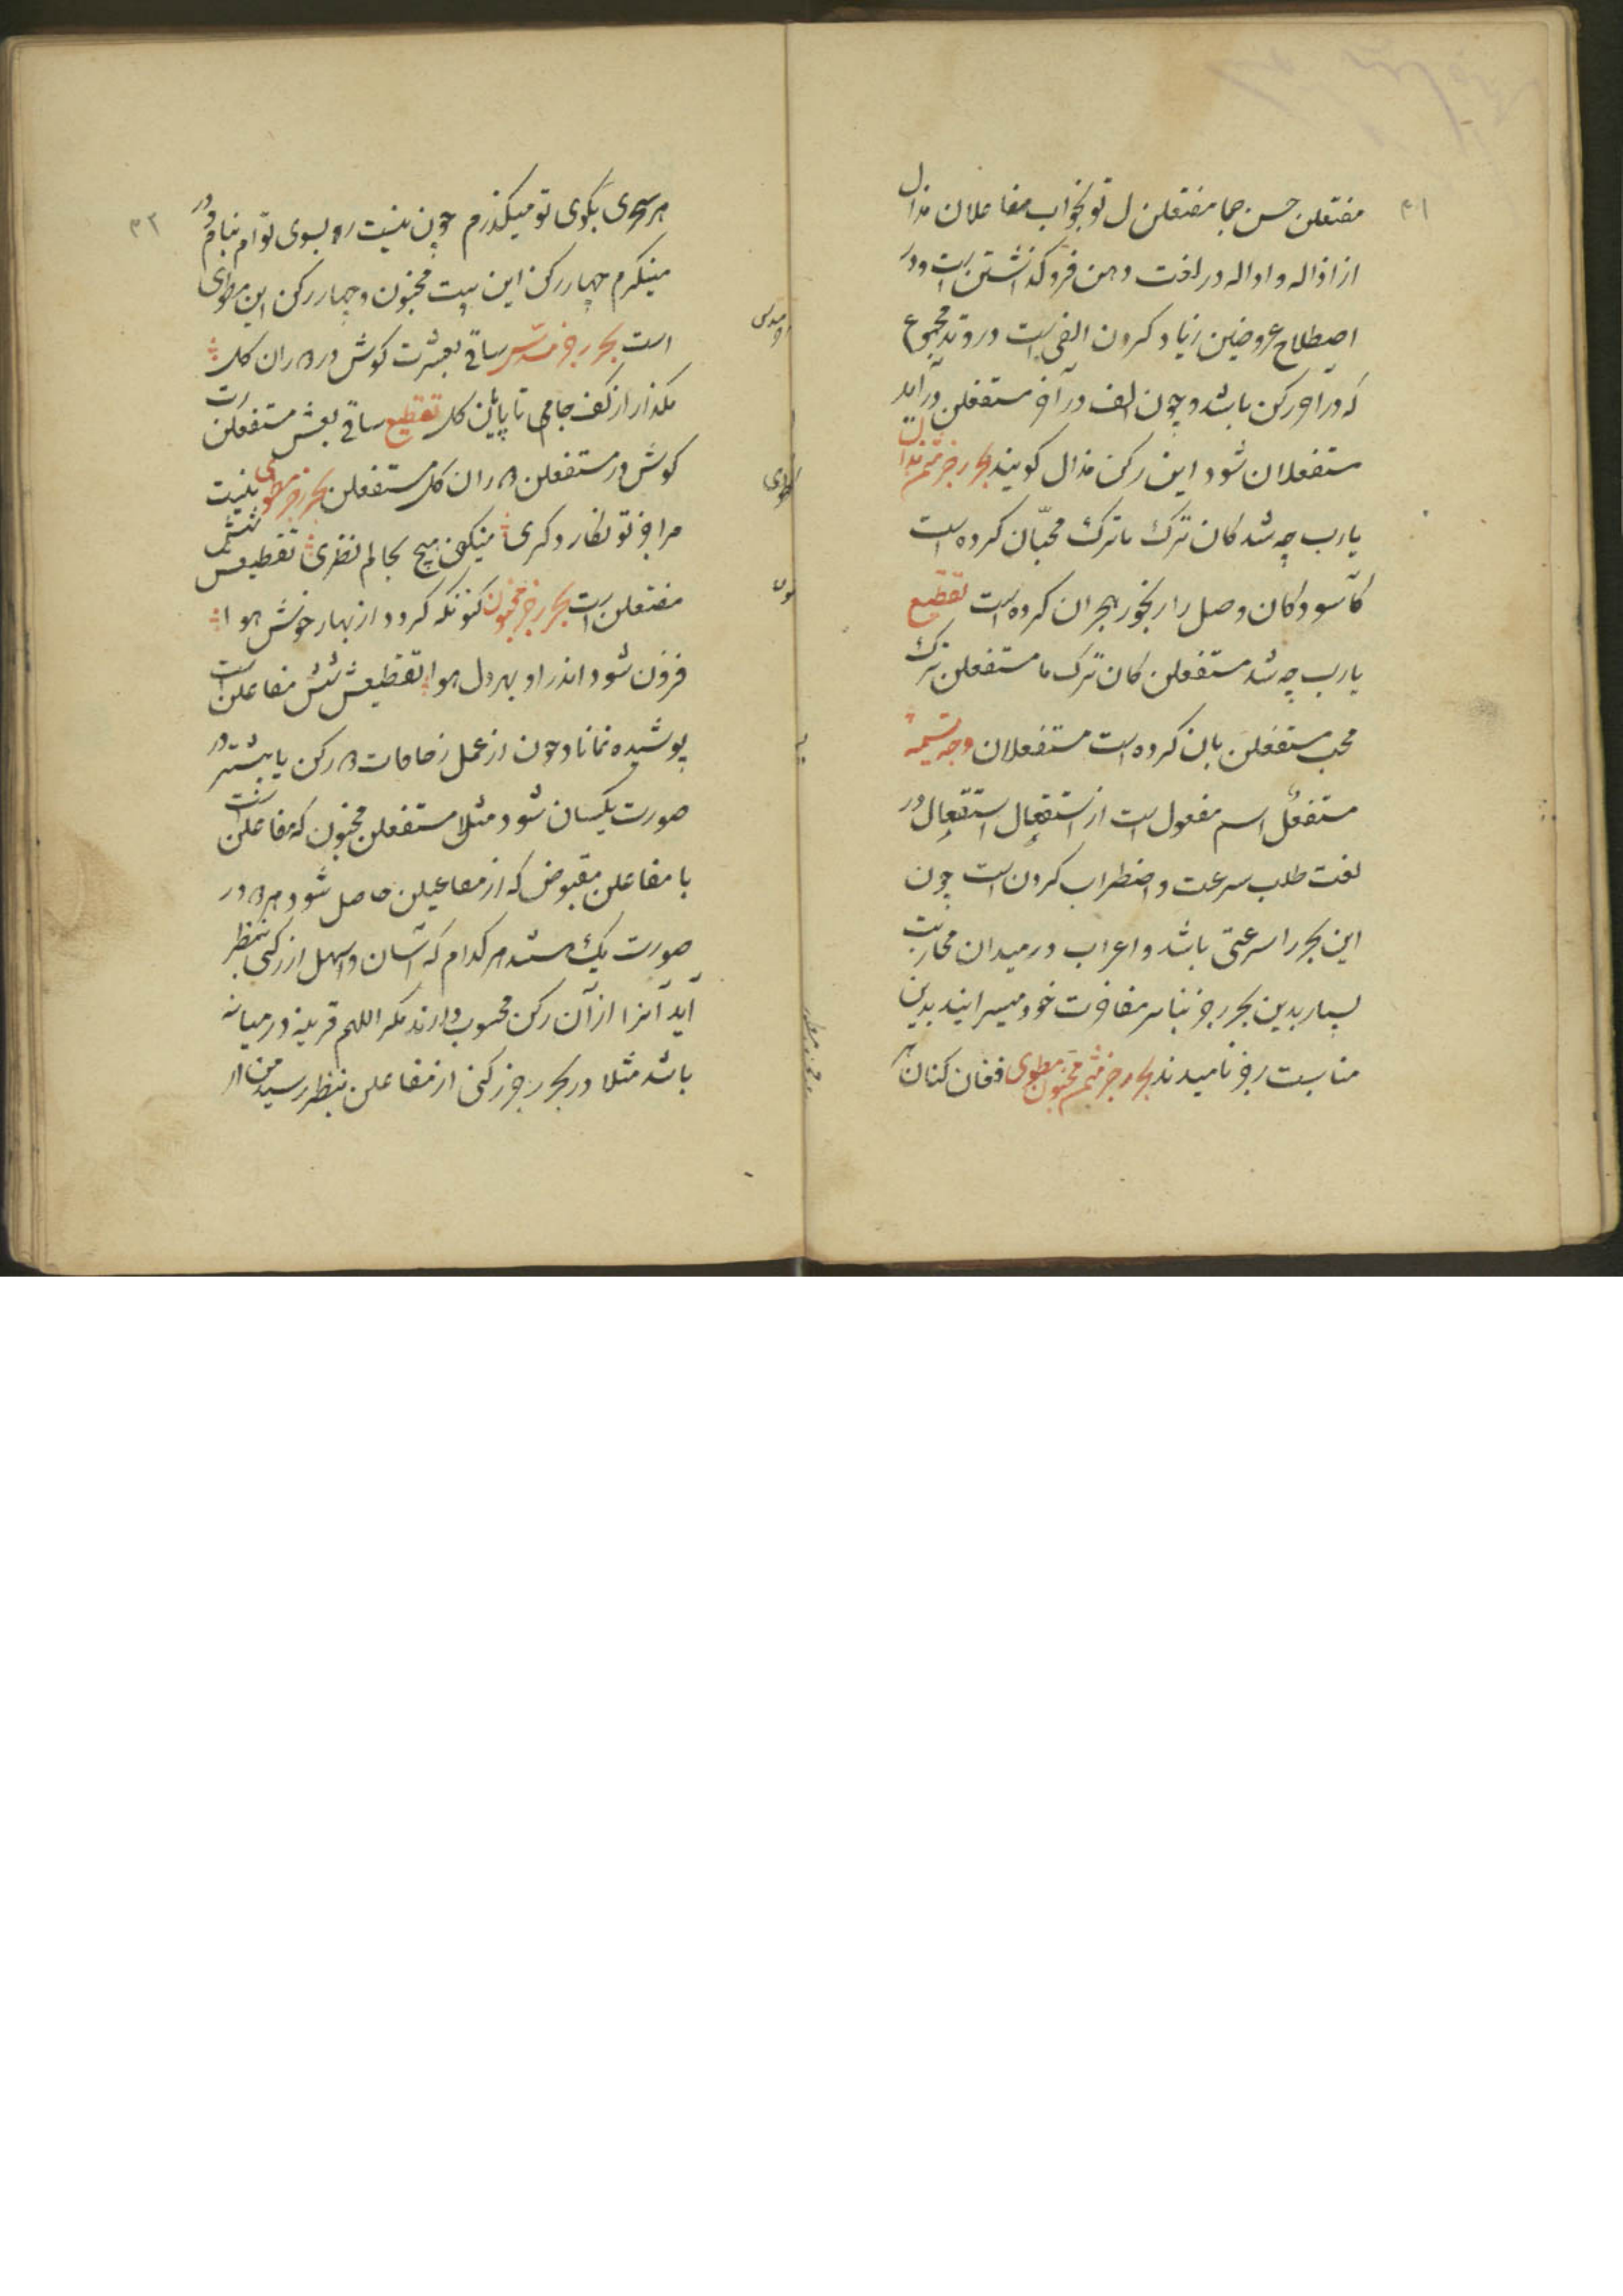 ۳۱
مفتعلن حسن جما مفتعلن ل تو بخواب مفاعلان مذال
از اذاله و اذاله در لغت دامن فروگذاشتن است و در
اصطلاح عروضین زیاد کردن الفی است در وتد مجموع
که در آخر رکن باشد و چون الف در آخر مستفعلن درآید
مستفعلان شود این رکن مذال کویند بحر رجز مثمن مذال
یارب چه شد کان ترک ما ترک محبّان کرده است
کآسودکان وصل را رنجور هجران کرده است تقطیع
یارب چه شد مستفعلن کان ترک ما مستفعلن ترک
محب مستفعلن بان کرده است مستفعلان وجه تسمیه
مستفعل اسم مفعول است از استفعال استفعال در
لغت طلب سرعت و اضطراب کردن است چون
این بحر را سرعتی باشد و اعراب در میدان محاربت
بسیار بدین بحر رجز بنابر مفاخرت خود میسرایند بدین
مناسبت رجز نامیدند بحر رجز مثمن مخبون مطوی فغان کنان
۳۲
هر سحری بکوی تو میکذرم چون نیست ره بسوی توام بام و در
مینکرم چهار رکن این بیت مخبون و چهار رکن این مطوی
است بحر رجز مسدس ساقی بعشرت کوش در دوران کل
مکذار از کف جام می تا پایان کل تقطیع ساقی بعش مستفعلن رت
کوش در مستفعلن دوران کل مستفعلن بحر رجز مطوی نیست
مرا جز تو نکار دکری میکنی هیچ بحالم نظری تقطیعش شش
مفتعلن است بحر رجز مخبون کنونکه کردد از بهار خوش هوا
فزون شود اندر او بهر دل هوا تقطیعش شش مفاعلن است
پوشیده نماناد چون از عمل زحافات دو رکن یا بیشتر در
صورت یکسان شود مثلا مستفعلن مخبون که مفاعلن است
با مفاعلن مقبوض که از مفاعیلن حاصل شود هر دو در
صورت یک‌ است هر کدام که آسان و اسهل از رکنی بنظر
آید آنرا از آن رکن محسوب دارند مکر اللهم قرینه در میانه
باشد مثلا در بحر رجز رکنی از مفاعلن بنظر رسید من از